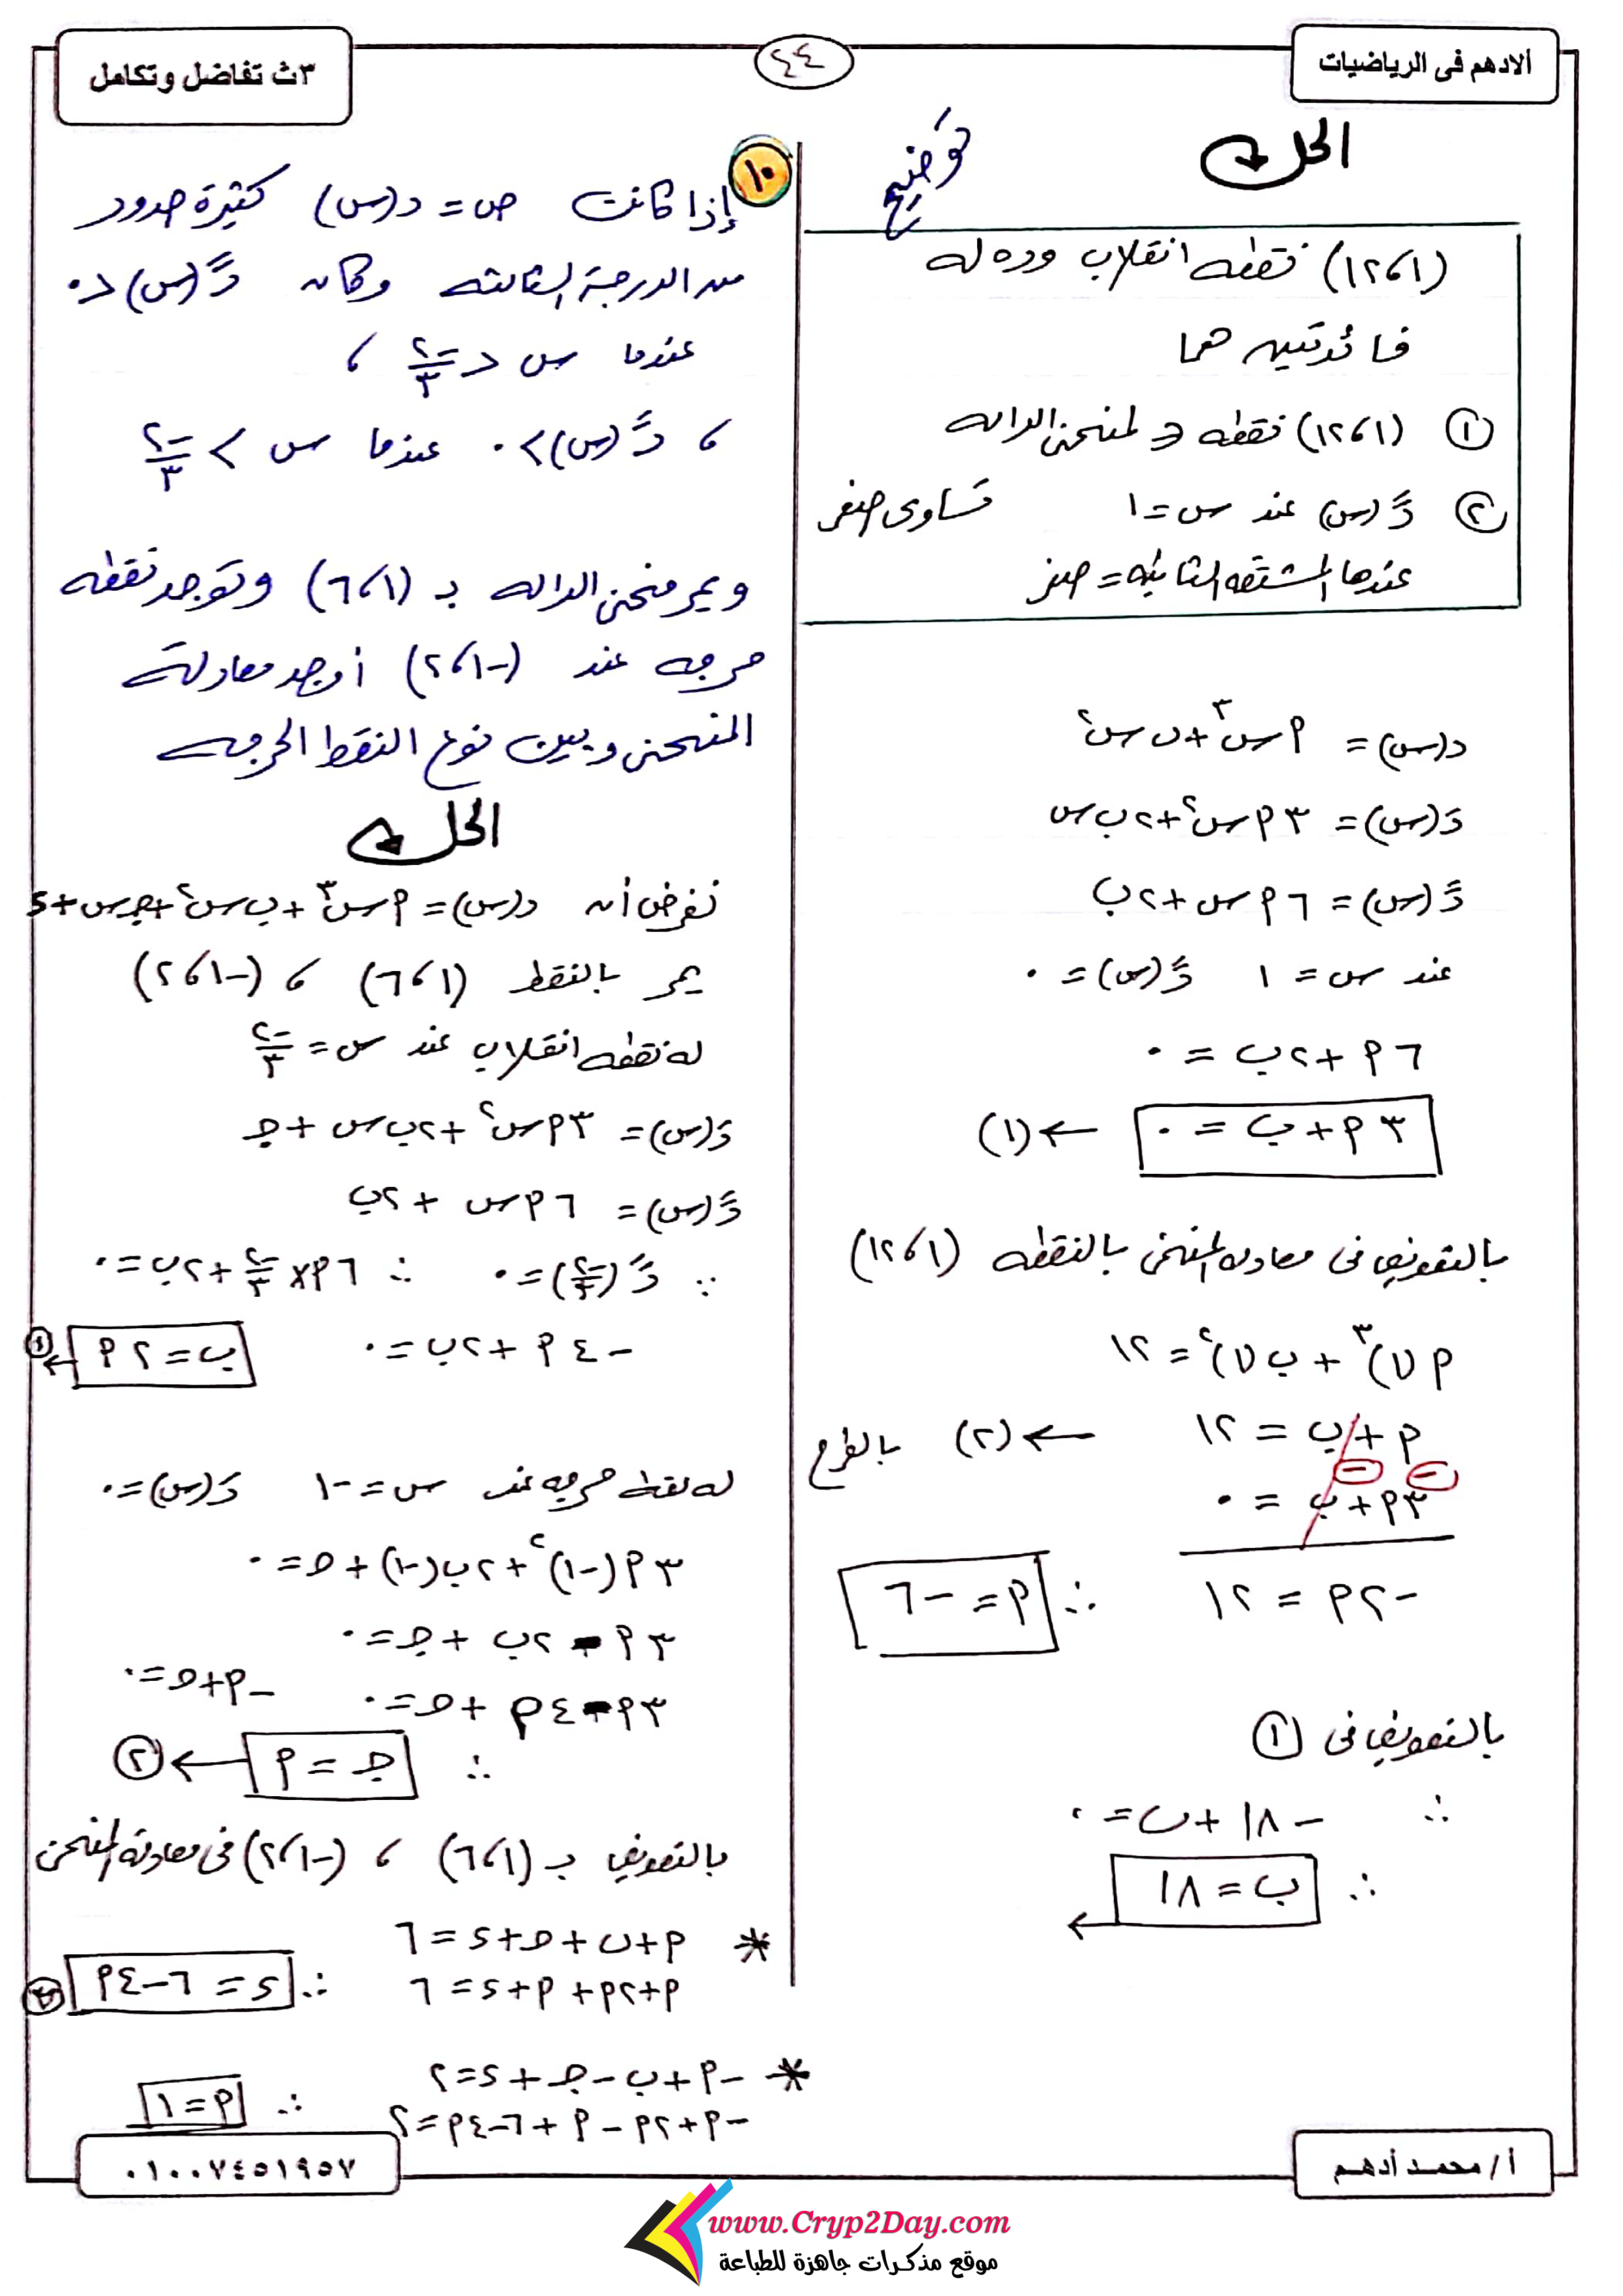 ألادهم فى الرياضيات
٤٤
٣ث تفاضل وتكامل
الحل
توضيح
(١، ١٢) نقطه انقلاب وده له
فائدتين هما
① (١، ١٢) نقطه لمنحنى الداله
② دً(س) عند س = ١ تساوى صفر
عندها المشتقه الثانيه = صفر
د(س) = ٩س٣ + ب س٢
دَ(س) = ٣٩س٢ + ٢ب س
دً(س) = ٦٩س + ٢ب
عند س = ١ دً(س) = ٠
٦٩ + ٢ب = ٠
٣٩ + ب = ٠ ← (١)
بالتعويض فى معادله المنحنى بالنقطه (١، ١٢)
٩(١)٣ + ب(١)٢ = ١٢
٩ + ب = ١٢ ← (٢) بالطرح
٣٩ + ب = ٠
-٢٩ = ١٢ ∴ ٩ = -٦
بالتعويض فى ①
∴ -١٨ + ب = ٠
∴ ب = ١٨
←
١٠
إذا كانت ص = د(س) كثيرة حدود
من الدرجة الثالثه وكان دً(س) < ٠
عندما س < -٢/٣ ،
، دً(س) > ٠ عندما س > -٢/٣
ويمر منحنى الداله بـ (١، ٦) وتوجد نقطه
حرجه عند (-١، ٢) أوجد معادلة
المنحنى وبين نوع النقط الحرجه
الحل
نفرض أن د(س) = ٩س٣ + ب س٢ + جـ س + د
يمر بالنقط (١، ٦) ، (-١، ٢)
له نقطه انقلاب عند س = -٢/٣
دَ(س) = ٣٩س٢ + ٢ب س + جـ
دً(س) = ٦٩س + ٢ب
∵ دً(-٢/٣) = ٠ ∴ ٦٩ × -٢/٣ + ٢ب = ٠
-٤٩ + ٢ب = ٠ ب = ٢٩ ← ①
له نقطه حرجه عند س = -١ دَ(س) = ٠
٣٩(-١)٢ + ٢ب(-١) + جـ = ٠
٣٩ - ٢ب + جـ = ٠
٣٩ - ٤٩ + جـ = ٠ -٩ + جـ = ٠
∴ جـ = ٩ ← ②
بالتعويض بـ (١، ٦) ، (-١، ٢) فى معادلة المنحنى
* ٩ + ب + جـ + د = ٦
٩ + ٢٩ + ٩ + د = ٦ ∴ د = ٦ - ٤٩ ③
* -٩ + ب - جـ + د = ٢
-٩ + ٢٩ - ٩ + ٦ - ٤٩ = ٢ ∴ ٩ = ١
أ/محمد أدهم
٠١٠٠٧٤٥١٩٥٧
www.Cryp2Day.com
موقع مذكرات جاهزة للطباعة